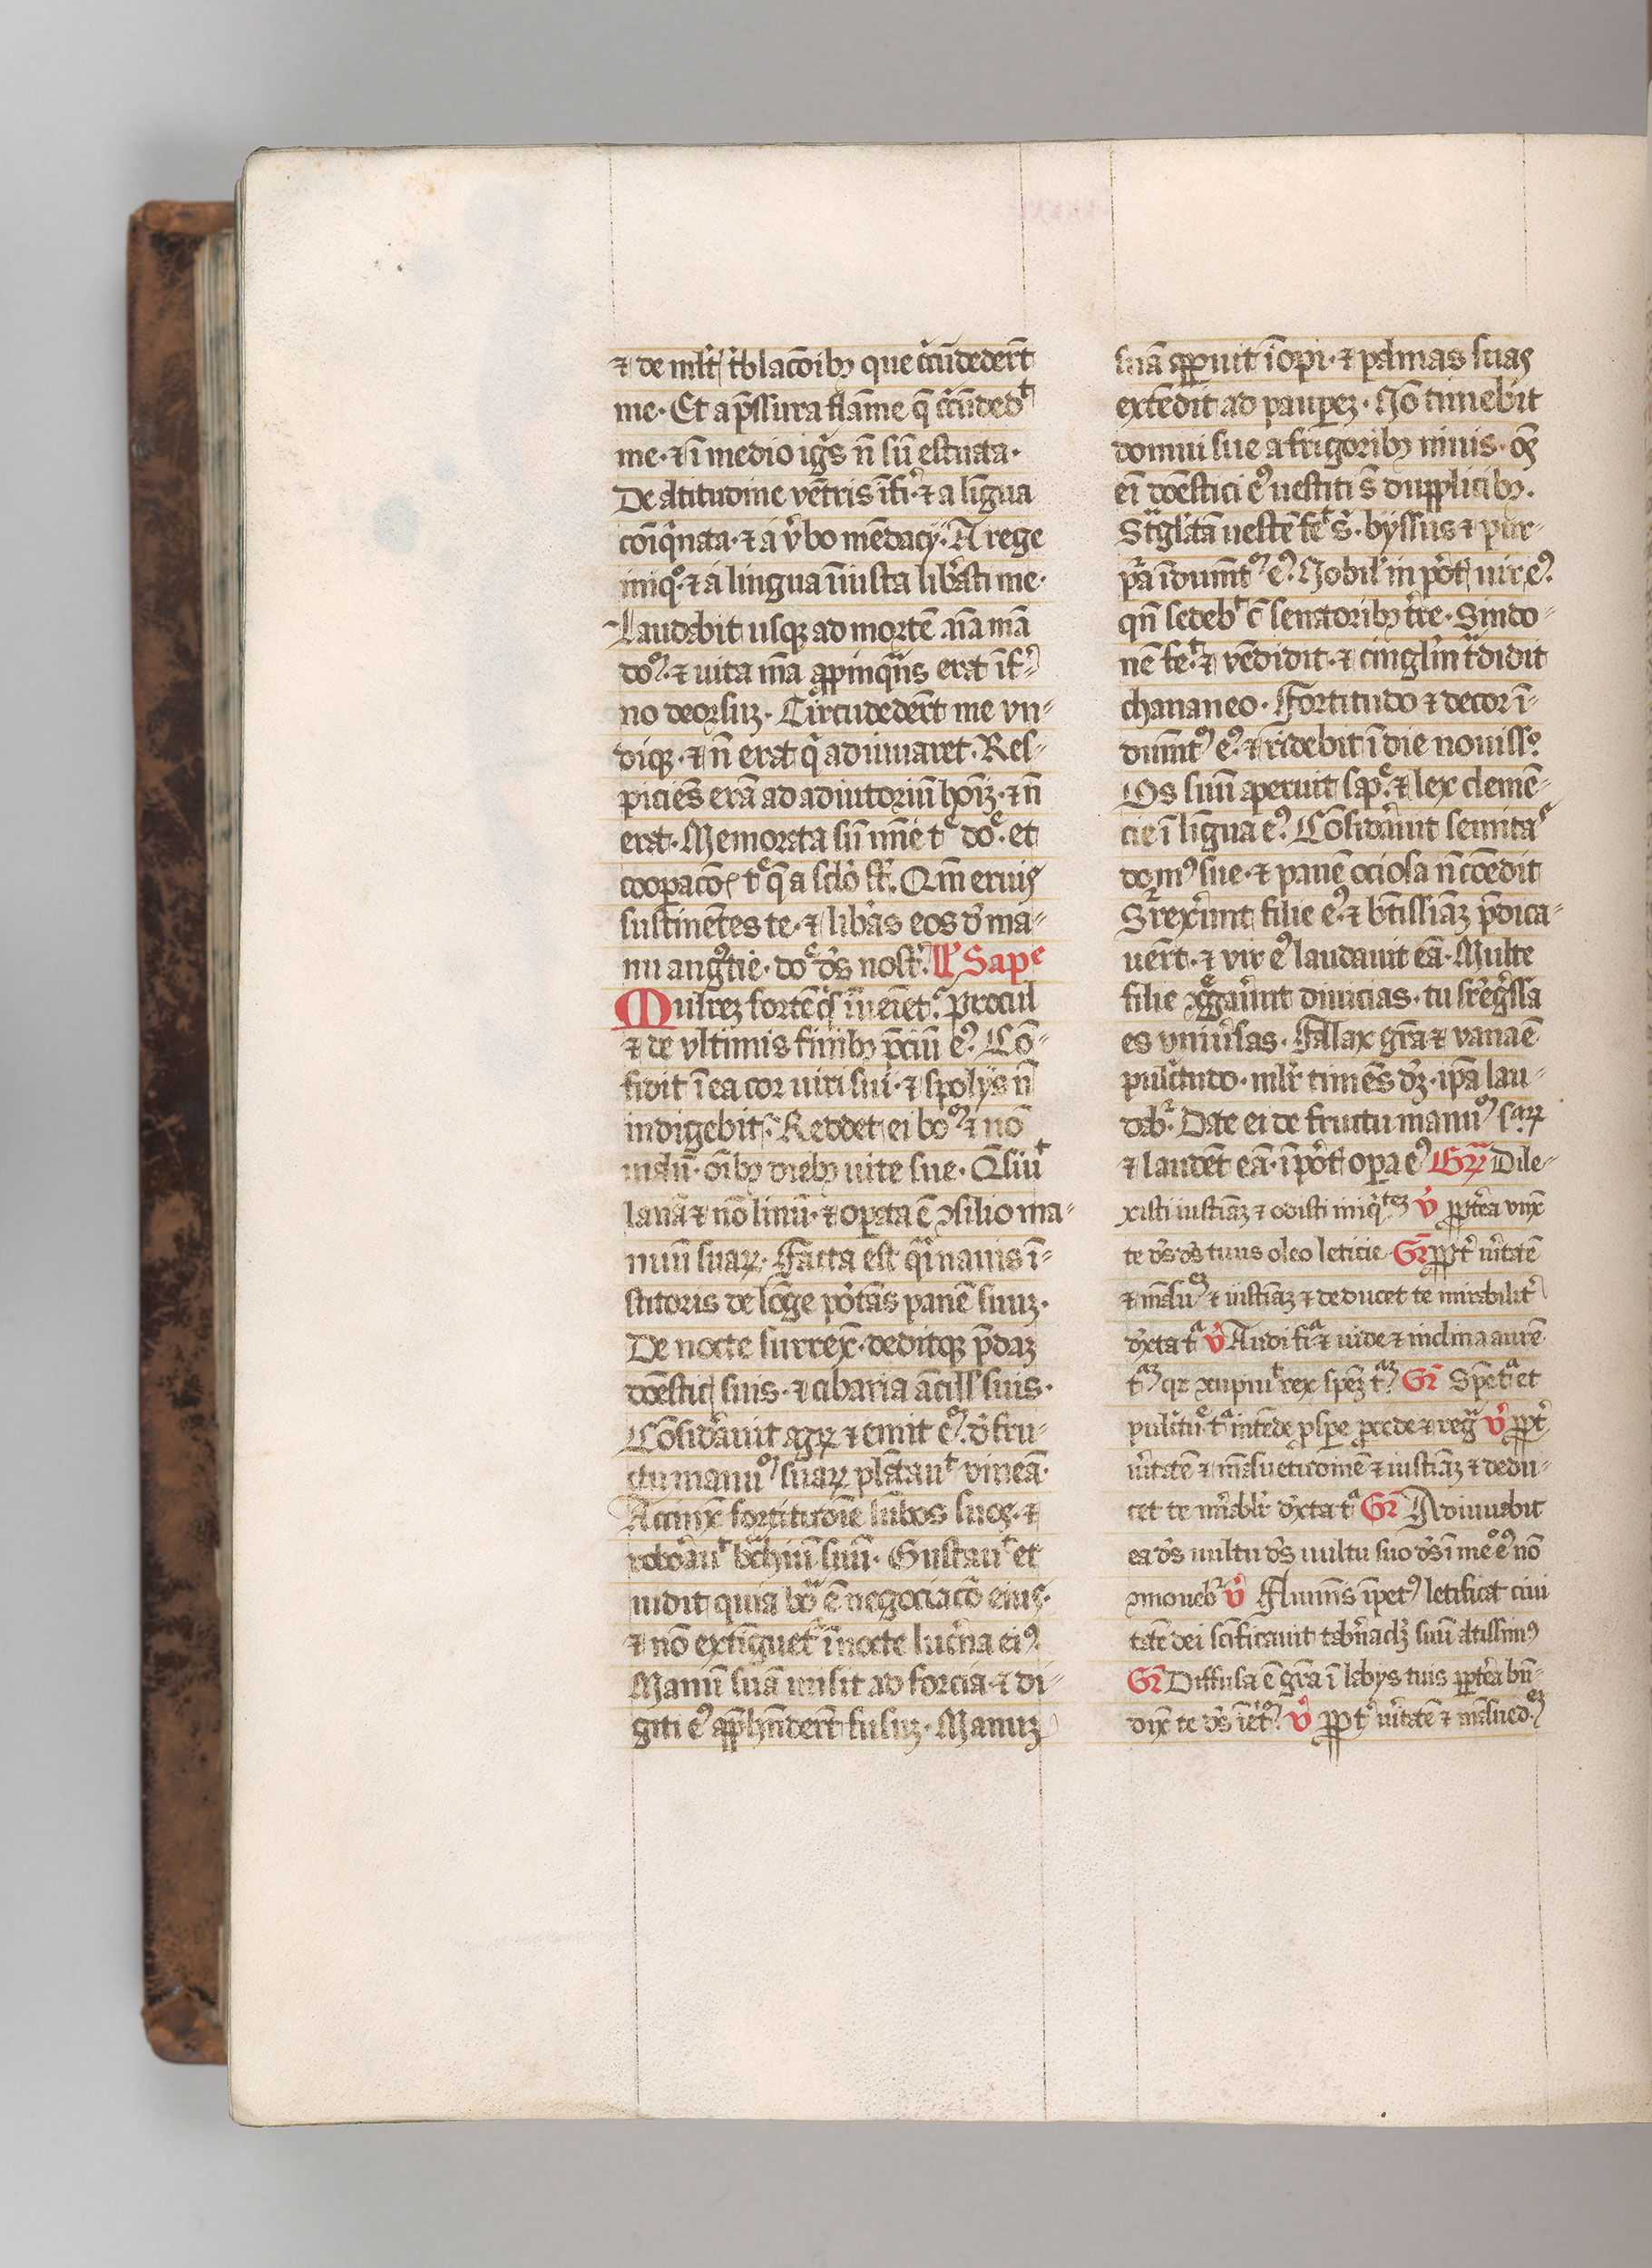 ⁊ de mlt̕ t̕blac̄oib⁊ que c̕cūdeder̄t
me· Et a p̄ssura flāme q̄ c̕cūdedᵗ
me· ⁊ ī medio ig̕s n̄ sū estuata·
De altitudine vētris īfi̕· ⁊ a lingua
coīq̕nata· ⁊ a v̕bo mēdacij· A rege
iniqᵒ· ⁊ a lingua iniusta lib̕asti me·
Laudabit usq⁊ ad mortē aīa mā
doꝰ· ⁊ uita mā aꝓpinquās erat īfꝰ⸗
no deorsuz· Circūdeder̄t me vn⸗
diq⁊· ⁊ n̄ erat q̕ adiuuaret· Res⸗
piciēs erā ad adiutoriū hoīz· ⁊ n̄
erat· Memorata sū mīe tᵉ doᵉ· et
coopacōꝭ tᵉ q̄ a sc̄lo st̕· Qm̄ eruis
sustinētes te· ⁊ lib̕as eos d̕ ma⸗
nu angꝰtie· doᵉ ds̄ nost̕· ll̕ Sapᵉ
Mulrez fortē q̕s īueīet· procul
⁊ de vltimis finib⁊ p̄ciū eꝰ· Cō⸗
fidit ī ea cor uiri sui· ⁊ spolijs n̄
indigebit· Reddet ei boꝰ ⁊ nō
malū· oīb⁊ dieb⁊ uite sue· Q̄siuᵗ
lanā ⁊ nō linū· ⁊ opata ē ꝯsilio ma⸗
nuū suaꝝ· Facta est q̕ nauis ī⸗
stitoris de lōge portās panē suuz·
De nocte surrex̄· deditq⁊ p̄daz
doēstic̕ suis· ⁊ cibaria ācill̕ suis·
Cōsid̕auit agꝝ ⁊ emit eꝰ· d̕ fru⸗
ctu manuꝰ suaꝝ plātauᵗ vineā·
Accinx̄ fortitudīe lūbos suos· ⁊
roborauᵗ bᵃchiū suū· Gustauᵗ et
uidit quia boᵃ ē negociacō eius·
⁊ nō extīguetᵗ ī nocte luc̕na eiꝰ
Manū suā misit ad forcia· ⁊ di⸗
giti eꝰ app̄hēder̄t fusuz· Manuz
suā apperuit īopi· ⁊ palmas suas
extēdit ad paupez· Nō timebit
domui sue a frigorib⁊ niuis· oēs
eī doēstici eꝰ uestiti s̄ dupplicib⁊·
Stᵃgl̕atā uestē feᵗ s̕· byssus ⁊ pur⸗
pᵃ īdumtꝰ eꝰ· Nobil̕ in port̕ uir eꝰ·
qn̄ sedebᵗ c̄ senatorib⁊ t̕re· Sindo⸗
nē feᵗ· ⁊ vēdidit· ⁊ cingl̕m tᵃdidit
chananeo· Fortitudo ⁊ decor ī⸗
dumtꝰ eꝰ· ⁊ ridebit ī die nouissᵒ
Os suū aperuit sapᵉ· ⁊ lex clemē⸗
cie ī lingua eꝰ· Cōsid̕auit semitaˢ
domꝰ sue· ⁊ panē ociosa n̄ cōedit
Sᵣrexer̄unt filie eꝰ· ⁊ btīssīaz p̄dica⸗
uer̄t· ⁊ vir eꝰ laudauit eā· Multe
filie ꝯgᵉgau̕unt diuicias· tu sᵣgressa
es vniu̕sas· Fallax gr̄a ⁊ vana ē
pulc̕tudo· mlr̕ timēs dz̄· ip̄a lau⸗
dabᵣ· Date ei de fructu manuꝰ sᵃꝝ
⁊ laudēt eā· ī port̕ opa eꝰ Grᵃ Dile⸗
xisti iustīaz ⁊ odisti iniq̕tez v̕ ꝓpt̕ea vnx̄
te ds̄ ds̄ tuus oleo leticie Gr̄ ꝓpt̕ u̕itatē
⁊ māsuᵉᶻ ⁊ iustīaz ⁊ deducet te mirabilit̕
dx̄ta tᵃ v̕ Audi fiᵃ ⁊ uide ⁊ inclina aurē
tᵃᶻ qr ꝯcupiuᵗ rex spēz tᵃᶻ Gr̄ Spē tᵃ et
pulc̕tuᵉ tᵃ intēde ꝓspe ꝓcede ⁊ regᵃ v̕ ꝓpt̕
u̕itatē ⁊ māsuetudinē ⁊ iustīaz ⁊ dedu⸗
cet te mirabl̕r dx̄ta tᵃ Gr̄ Adiuuabit
ea ds̄ uultu ds̄ uultu suo ds̄ ī meᵒ eꝰ nō
ꝯmouebᵣ v̕ Flumīs īpetꝰ letificat ciui
tatē dei scīficauit tab̕naclz̄ suū altissimꝰ
Gr̄ Diffusa ē gr̄a ī labijs tuis ꝓpt̕ea bn̄⸗
dix̄ te ds̄ ī etꝰ· v̕ ꝓpt̕ u̕itatē ⁊ māsuedᵉᶻ